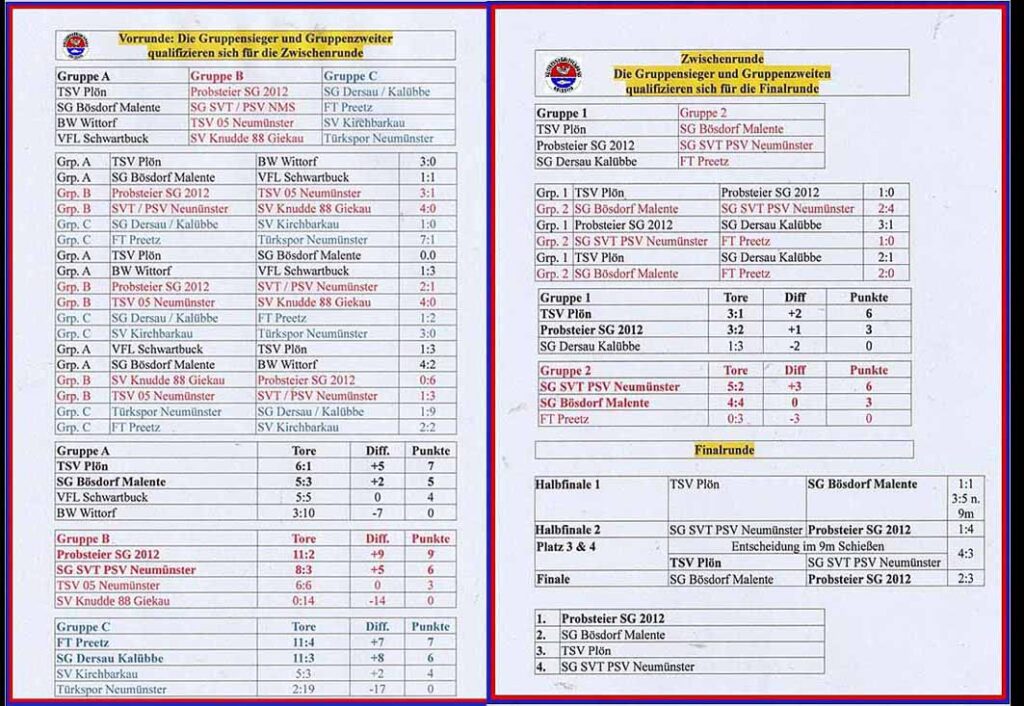 Vorrunde: Die Gruppensieger und Gruppenzweiter
qualifizieren sich für die Zwischenrunde
Gruppe A Gruppe B Gruppe C
TSV Plön Probsteier SG 2012 SG Dersau / Kalübbe
SG Bösdorf Malente SG SVT / PSV NMS FT Preetz
BW Wittorf TSV 05 Neumünster SV Kirchbarkau
VFL Schwartbuck SV Knudde 88 Giekau Türkspor Neumünster
Grp. A TSV Plön BW Wittorf 3:0
Grp. A SG Bösdorf Malente VFL Schwartbuck 1:1
Grp. B Probsteier SG 2012 TSV 05 Neumünster 3:1
Grp. B SVT / PSV Neunünster SV Knudde 88 Giekau 4:0
Grp. C SG Dersau / Kalübbe SV Kirchbarkau 1:0
Grp. C FT Preetz Türkspor Neumünster 7:1
Grp. A TSV Plön SG Bösdorf Malente 0.0
Grp. A BW Wittorf VFL Schwartbuck 1:3
Grp. B Probsteier SG 2012 SVT / PSV Neumünster 2:1
Grp. B TSV 05 Neumünster SV Knudde 88 Giekau 4:0
Grp. C SG Dersau / Kalübbe FT Preetz 1:2
Grp. C SV Kirchbarkau Türkspor Neumünster 3:0
Grp. A VFL Schwartbuck TSV Plön 1:3
Grp. A SG Bösdorf Malente BW Wittorf 4:2
Grp. B SV Knudde 88 Giekau Probsteier SG 2012 0:6
Grp. B TSV 05 Neumünster SVT / PSV Neumünster 1:3
Grp. C Türkspor Neumünster SG Dersau / Kalübbe 1:9
Grp. C FT Preetz SV Kirchbarkau 2:2
Gruppe A Tore Diff. Punkte
TSV Plön 6:1 +5 7
SG Bösdorf Malente 5:3 +2 5
VFL Schwartbuck 5:5 0 4
BW Wittorf 3:10 -7 0
Gruppe B Tore Diff. Punkte
Probsteier SG 2012 11:2 +9 9
SG SVT PSV Neumünster 8:3 +5 6
TSV 05 Neumünster 6:6 0 3
SV Knudde 88 Giekau 0:14 -14 0
Gruppe C Tore Diff. Punkte
FT Preetz 11:4 +7 7
SG Dersau Kalübbe 11:3 +8 6
SV Kirchbarkau 5:3 +2 4
Türkspor Neumünster 2:19 -17 0
Zwischenrunde
Die Gruppensieger und Gruppenzweiten
qualifizieren sich für die Finalrunde
Gruppe 1 Gruppe 2
TSV Plön SG Bösdorf Malente
Probsteier SG 2012 SG SVT PSV Neumünster
SG Dersau Kalübbe FT Preetz
Grp. 1 TSV Plön Probsteier SG 2012 1:0
Grp. 2 SG Bösdorf Malente SG SVT PSV Neumünster 2:4
Grp. 1 Probsteier SG 2012 SG Dersau Kalübbe 3:1
Grp. 2 SG SVT PSV Neumünster FT Preetz 1:0
Grp. 1 TSV Plön SG Dersau Kalübbe 2:1
Grp. 2 SG Bösdorf Malente FT Preetz 2:0
Gruppe 1 Tore Diff Punkte
TSV Plön 3:1 +2 6
Probsteier SG 2012 3:2 +1 3
SG Dersau Kalübbe 1:3 -2 0
Gruppe 2 Tore Diff Punkte
SG SVT PSV Neumünster 5:2 +3 6
SG Bösdorf Malente 4:4 0 3
FT Preetz 0:3 -3 0
Finalrunde
Halbfinale 1 TSV Plön SG Bösdorf Malente 1:1
3:5 n.
9m
Halbfinale 2 SG SVT PSV Neumünster Probsteier SG 2012 1:4
Platz 3 & 4 Entscheidung im 9m Schießen 4:3
TSV Plön SG SVT PSV Neumünster
Finale SG Bösdorf Malente Probsteier SG 2012 2:3
1. Probsteier SG 2012
2. SG Bösdorf Malente
3. TSV Plön
4. SG SVT PSV Neumünster